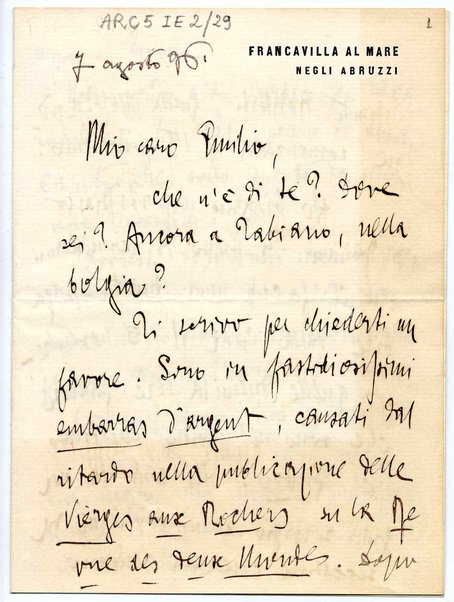 ARC5 IE2/29
1
FRANCAVILLA AL MARE
NEGLI ABRUZZI
7 agosto 96.
Mio caro Emilio,
che n'è di te? Dove
sei? Ancora a Tabiano, nella
bolgia?
Ti scrivo per chiederti un
favore. Sono in fastidiosissimi
embarras d'argent, causati dal
ritardo nella publicazione delle
Vierges aux Rochers su la Re
vue des deux Mondes. Dopo